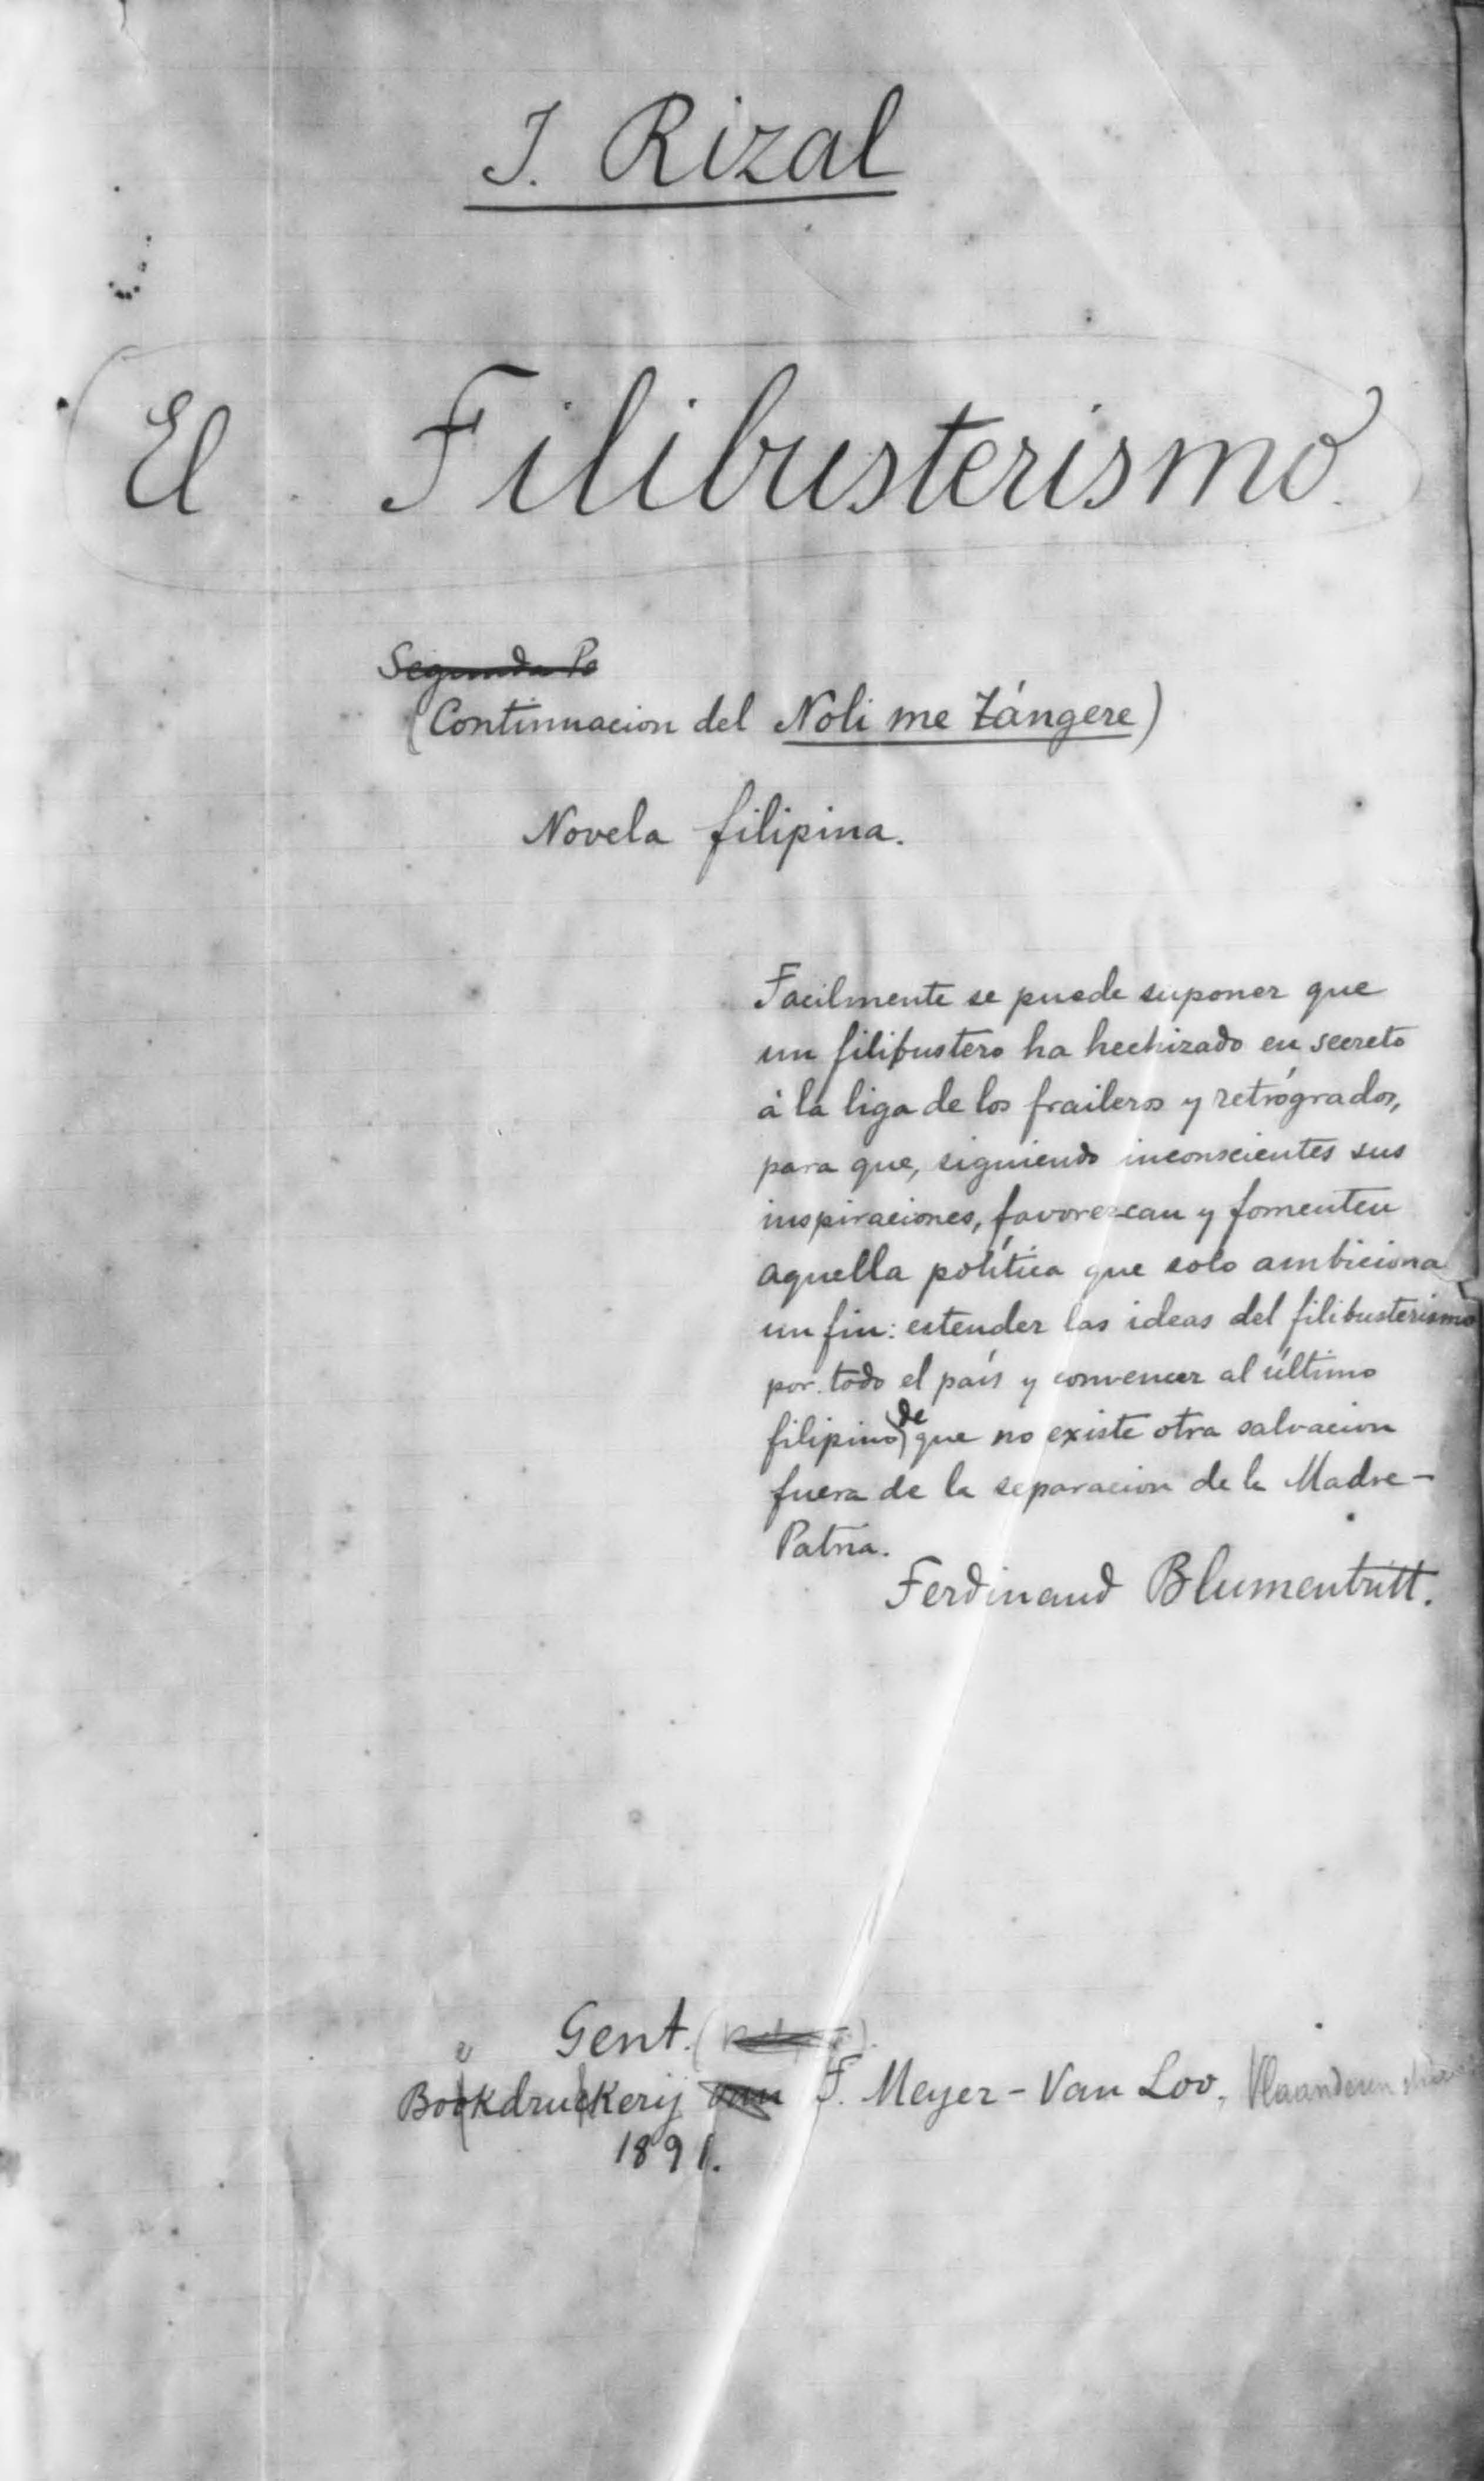 J. Rizal
El Filibusterismo
Segunda Pa
(Continuacion del Noli me tángere)
Novela filipina.
Facilmente se puede suponer que
un filibustero ha hechizado en secreto
á la liga de los fraileros y retrógrados,
para que, siguiendo inconscientes sus
inspiraciones, favorezcan y fomenten
aquella política que solo ambiciona
un fin: estender las ideas del filibusterismo
por todo el país y convencer al último
filipino de que no existe otra salvacion
fuera de la separacion de la Madre-
Patria.
Ferdinand Blumentritt.
Gent.
Boekdrukkerij F. Meyer-Van Loo, Vlaanderen
1891.